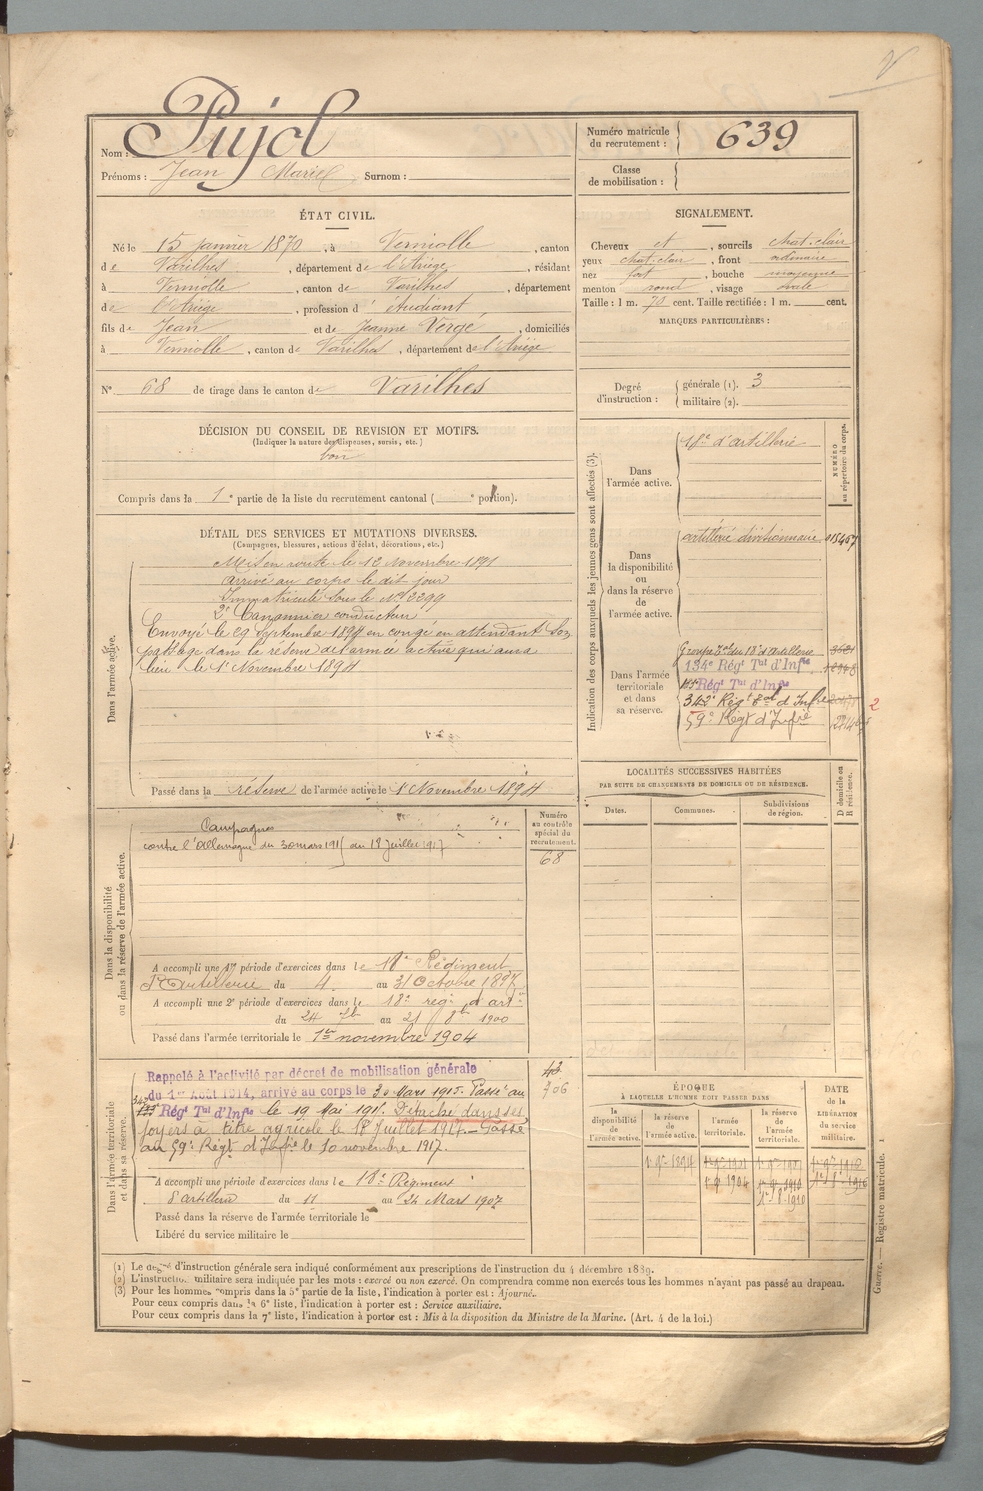 Nom : Pujol
Numéro matricule du recrutement : 639
Prénoms : Jean Marie Surnom :
Classe de mobilisation :
ÉTAT CIVIL.
Né le 15 janvier 1870, à Verniolle, canton
de Varilhes, département de l'Ariège, résidant
à Verniolle, canton de Varilhes, département
de l'Ariège, profession d'étudiant
fils de Jean et de Jeanne Vergé, domiciliés
à Verniolle, canton de Varilhes, département de l'Ariège
N° 68 de tirage dans le canton de Varilhes
SIGNALEMENT.
Cheveux et, sourcils chat-clair
yeux chat-clair, front ordinaire
nez fort, bouche moyenne
menton rond, visage ovale
Taille : 1 m. 70 cent. Taille rectifiée : 1 m. cent.
MARQUES PARTICULIÈRES :
Degré d'instruction :
générale (1). 3
militaire (2).
DÉCISION DU CONSEIL DE REVISION ET MOTIFS.
(Indiquer la nature des dispenses, sursis, etc.)
bon
Compris dans la 1e partie de la liste du recrutement cantonal ( e portion).
DÉTAIL DES SERVICES ET MUTATIONS DIVERSES.
(Campagnes, blessures, actions d'éclat, décorations, etc.)
Dans l'armée active.
Mis en route le 12 Novembre 1891
arrivé au corps le dit jour
Immatriculé sous le N° 2299
2e Canonnier conducteur
Envoyé le 29 Septembre 1894 en congé en attendant son
passage dans la réserve de l'armée active qui aura
lieu le 1 Novembre 1894
Passé dans la réserve de l'armée active le 1 Novembre 1894
Indication des corps auxquels les jeunes gens sont affectés (3).
NUMÉRO au répertoire du corps.
Dans l'armée active.
18e d'artillerie
Dans la disponibilité ou dans la réserve de l'armée active.
artillerie divisionnaire 015467
Dans l'armée territoriale et dans sa réserve.
Groupe Tal du 18e d'artillerie
134e Régt Tal d'Infie
Régt Tal d'Infie
342e Régt Tal d'Infie 2
59e Régt d'Infie
LOCALITÉS SUCCESSIVES HABITÉES
PAR SUITE DE CHANGEMENTS DE DOMICILE OU DE RÉSIDENCE.
Dates. Communes. Subdivisions de région. D domicile ou R résidence.
Dans la disponibilité ou dans la réserve de l'armée active.
Numéro au contrôle spécial du recrutement.
68
Campagnes
contre l'Allemagne du 30 mars 1915 au 18 Juillet 1917
A accompli une 1e période d'exercices dans le 18e Régiment
d'Artillerie du 4 au 31 Octobre 1897
A accompli une 2e période d'exercices dans le 18e rég. d'art.
du 24 7b au 21 8b 1900
Passé dans l'armée territoriale le 1er novembre 1904
Dans l'armée territoriale et dans sa réserve.
43
706
Rappelé à l'activité par décret de mobilisation générale
du 1er Août 1914, arrivé au corps le 30 Mars 1915. Passé au
342 Régt Tal d'Infie le 19 Mai 1915. Détaché dans ses
foyers à titre agricole le 18 Juillet 1917. Passé
au 59e Régt d'Infie le 10 novembre 1917.
A accompli une période d'exercices dans le 18e Régiment
d'artillerie du 11 au 24 Mars 1907
Passé dans la réserve de l'armée territoriale le
Libéré du service militaire le
ÉPOQUE
À LAQUELLE L'HOMME DOIT PASSER DANS
la disponibilité de l'armée active. la réserve de l'armée active. l'armée territoriale. la réserve de l'armée territoriale.
DATE de la LIBÉRATION du service militaire.
(1) Le degré d'instruction générale sera indiqué conformément aux prescriptions de l'instruction du 4 décembre 1889.
(2) L'instruction militaire sera indiquée par les mots : exercé ou non exercé. On comprendra comme non exercés tous les hommes n'ayant pas passé au drapeau.
(3) Pour les hommes compris dans la 5e partie de la liste, l'indication à porter est : Ajourné.
Pour ceux compris dans la 6e liste, l'indication à porter est : Service auxiliaire.
Pour ceux compris dans la 7e liste, l'indication à porter est : Mis à la disposition du Ministre de la Marine. (Art. 4 de la loi.)
Guerre. — Registre matricule. 1